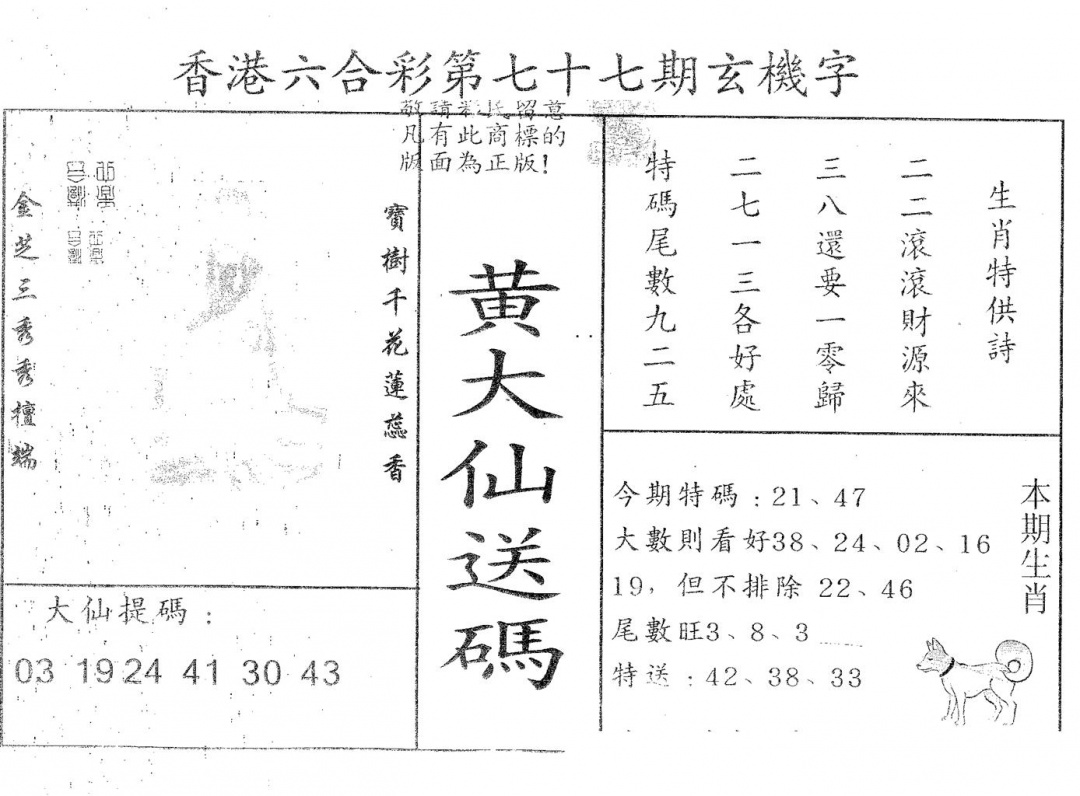 香港六合彩第七十七期玄機字
敬請彩民留意
凡有此商標的
版面為正版！
生肖特供詩
二二滾滾財源來
三八還要一零歸
二七一三各好處
特碼尾數九二五
寶樹千花蓮蕊香
金芝三秀秀檀端
黃大仙送碼
大仙提碼：
03 19 24 41 30 43
今期特碼：21、47
大數則看好38、24、02、16
19，但不排除 22、46
尾數旺3、8、3
特送：42、38、33
本期生肖